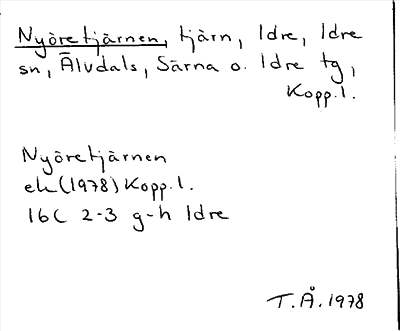 Nyöretjärnen, tjärn, Idre, Idre
sn, Älvdals, Särna o. Idre tg,
Kopp.l.
Nyöretjärnen
ek(1978) Kopp.l.
16C 2-3 g-h Idre
T.Å. 1978